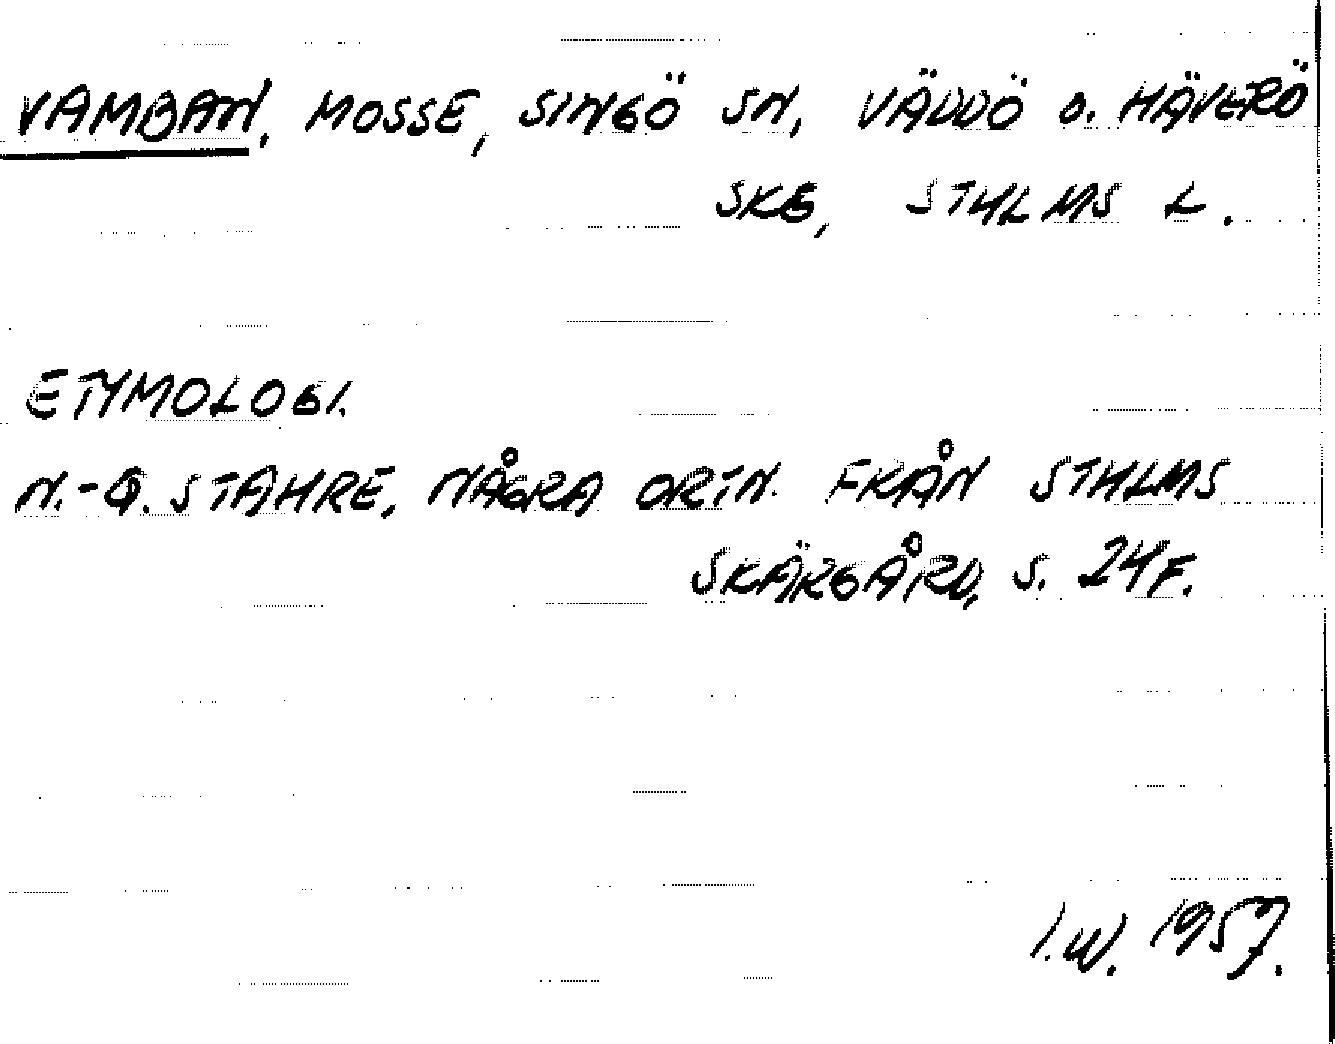 VAMBAN, MOSSE, SINGÖ SN, VÄDDÖ O. HÄVERÖ
SKG, STHLMS L.
ETYMOLOGI.
N.-G. STAHRE, NÅGRA ORTN. FRÅN STHLMS
SKÄRGÅRD, S. 24 F.
I.W. 1957.